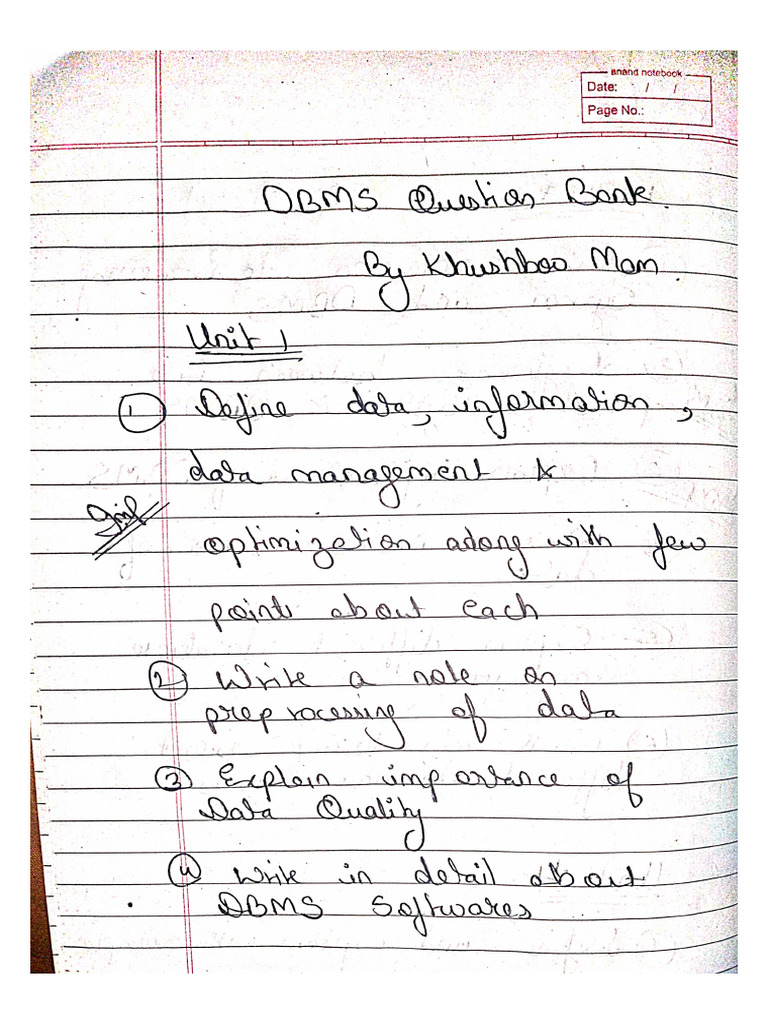 anand notebook
Date: / /
Page No.:
DBMS Question Bank.
By Khushboo Mam.
Unit 1
① Define data, information,
data management &
Imp
optimization along with few
points about each
② Write a note on
preprocessing of data
③ Explain importance of
Data Quality
④ Write in detail about
DBMS Softwares